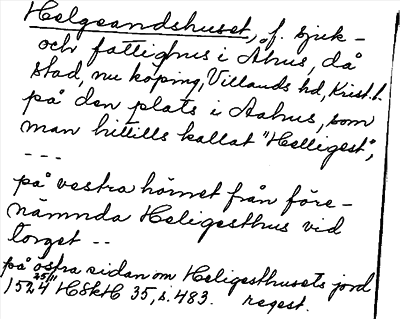 Helgeandshuset, f. sjuk-
och fattighus i Åhus, då
stad, nu köping, Villands hd, Krist. l.
på den plats i Aahus, som
man hittills kallat "Helligest",
---
på vestra hörnet från före-
nämnda Heligesthus vid
torget --
på östra sidan om Heligesthusets jord
1524 25/11 HSkH 35, s. 483. regest.